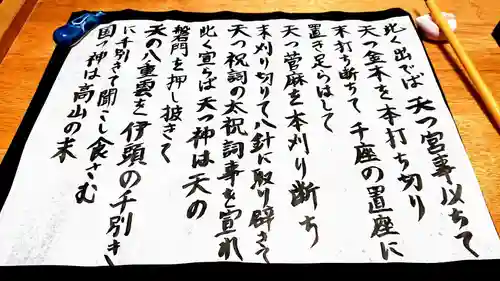 此く出でば 天つ宮事以ちて
天つ金木を本打ち切り
末打ち断ちて 千座の置座に
置き足らはして
天つ菅麻を本刈り断ち
末刈り切りて八針に取り辟きて
天つ祝詞の太祝詞事を宣れ
此く宣らば 天つ神は天の
磐門を押し披きて
天の八重雲を伊頭の千別き
に千別きて聞こし食さむ
国つ神は高山の末